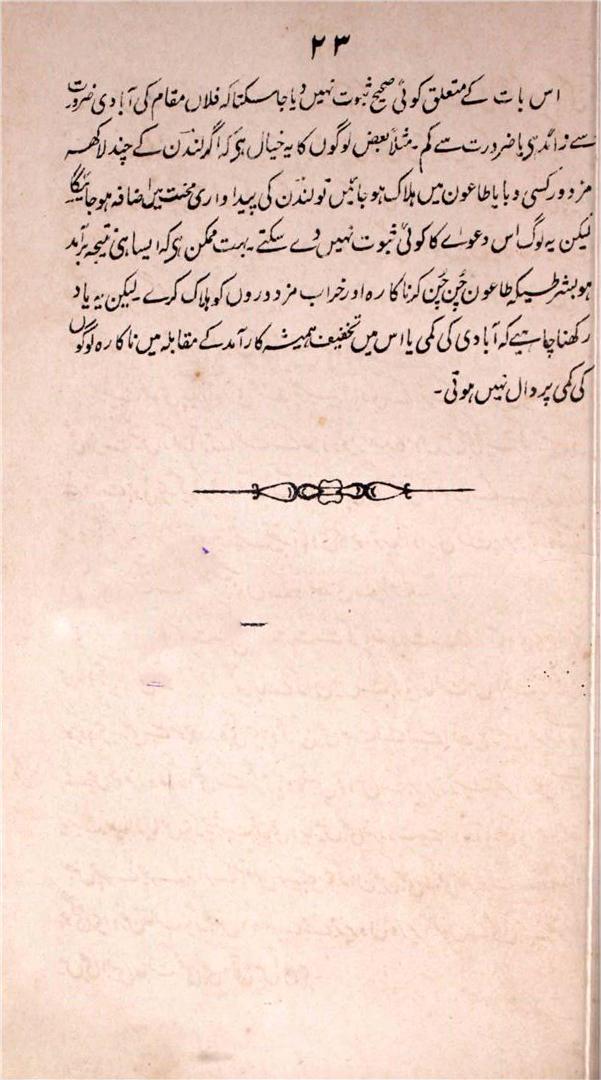 ۲۳
اس بات کے متعلق کوئی صحیح ثبوت نہیں دیا جا سکتا کہ فلاں مقام کی آبادی ضرورت
سے زائد ہی یا ضرورت سے کم۔ مثلاً بعض لوگوں کا یہ خیال ہی کہ اگر لندن کے چند لاکھہ
مزدور کسی وبا یا طاعون میں ہلاک ہو جائیں تو لندن کی پیداواری محنت میں اضافہ ہو جائیگا
لیکن یہ لوگ اس دعوے کا کوئی ثبوت نہیں دے سکتے۔ بہت ممکن ہی کہ ایسا ہی نتیجہ برآمد
ہو بشرطیکہ طاعون چُن چُن کر ناکارہ اور خراب مزدوروں کو ہلاک کرے۔ لیکن یہ یاد
رکھنا چاہیے کہ آبادی کی کمی یا اس میں تخفیف ہمیشہ کارآمد کے مقابلہ میں ناکارہ لوگوں
کی کمی پر دال نہیں ہوتی۔